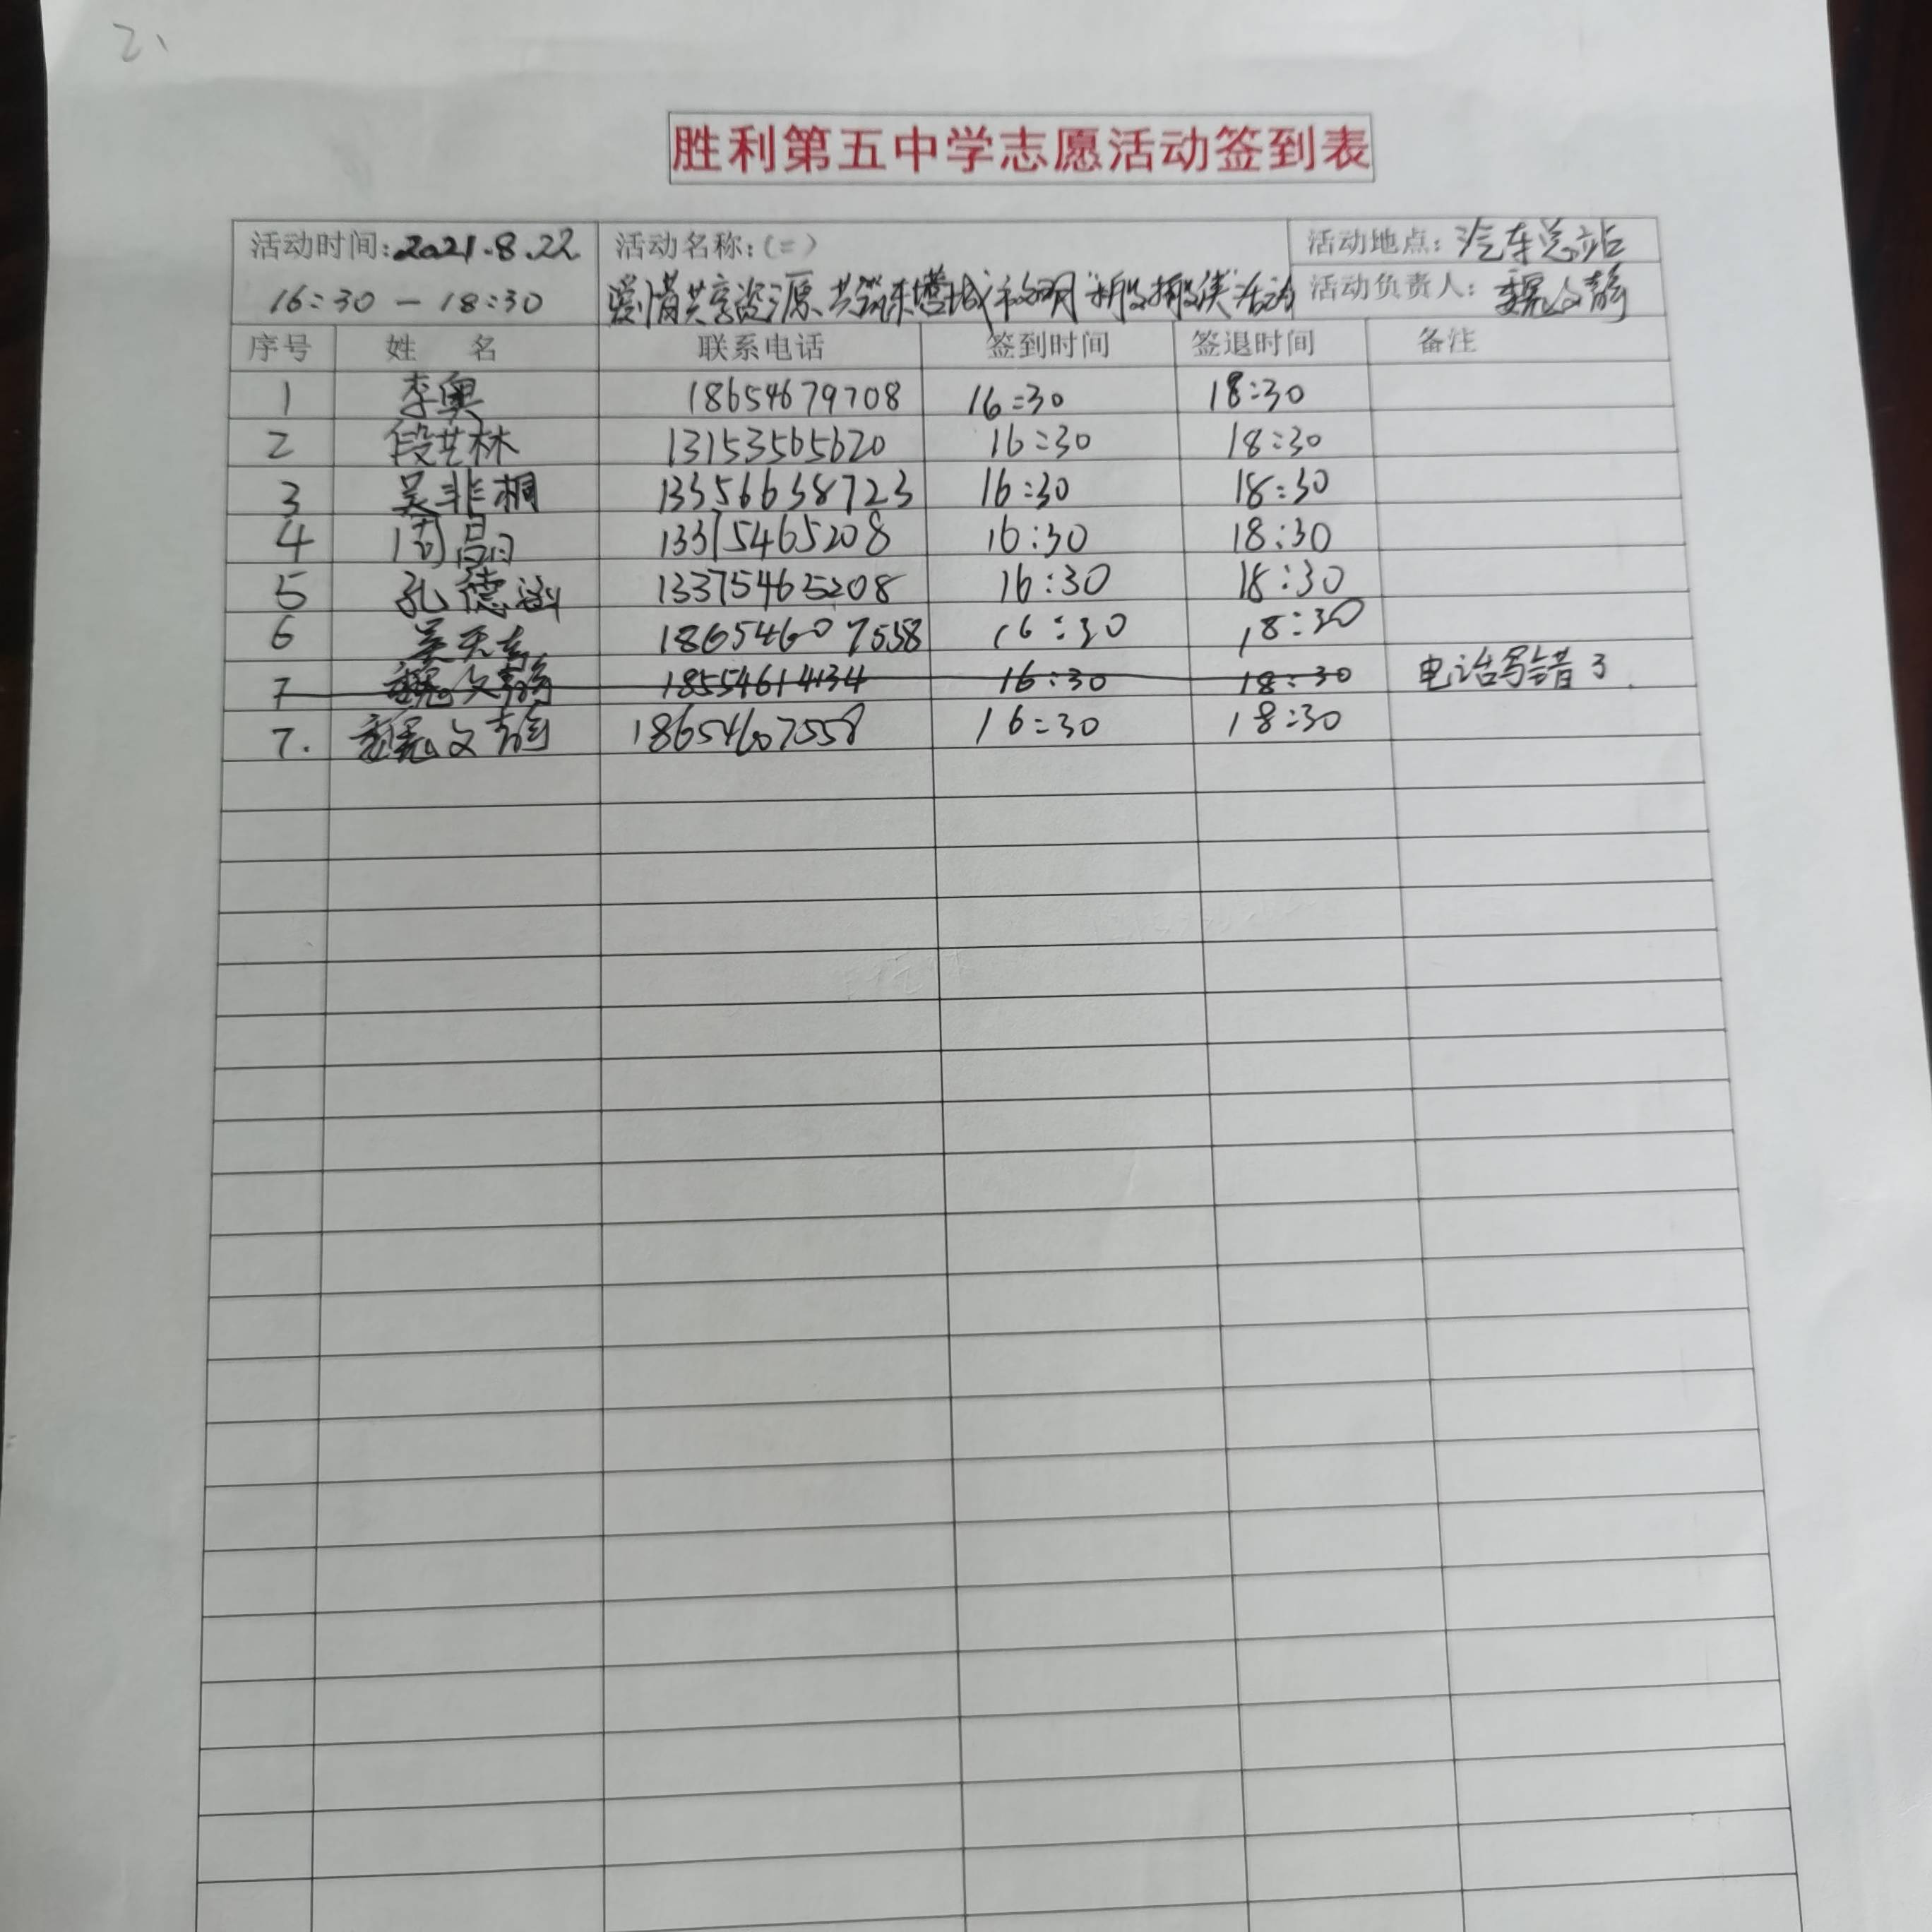 2、
胜利第五中学志愿活动签到表
活动时间:2021.8.22 活动名称:(二) 活动地点:汽车总站
16:30-18:30 爱情共享资源、共筑东营城市文明 活动 活动负责人:魏文静
序号 姓 名 联系电话 签到时间 签退时间 备注
1 李奥 18654679708 16:30 18:30
2 段艺林 13153565620 16:30 18:30
3 吴非桐 13356638723 16:30 18:30
4 周 13375465208 16:30 18:30
5 孔德涵 13375465208 16:30 18:30
6 18654607558 16:30 18:30
7 魏文静 18554614134 16:30 18:30 电话写错了.
7. 魏文静 18654607558 16:30 18:30